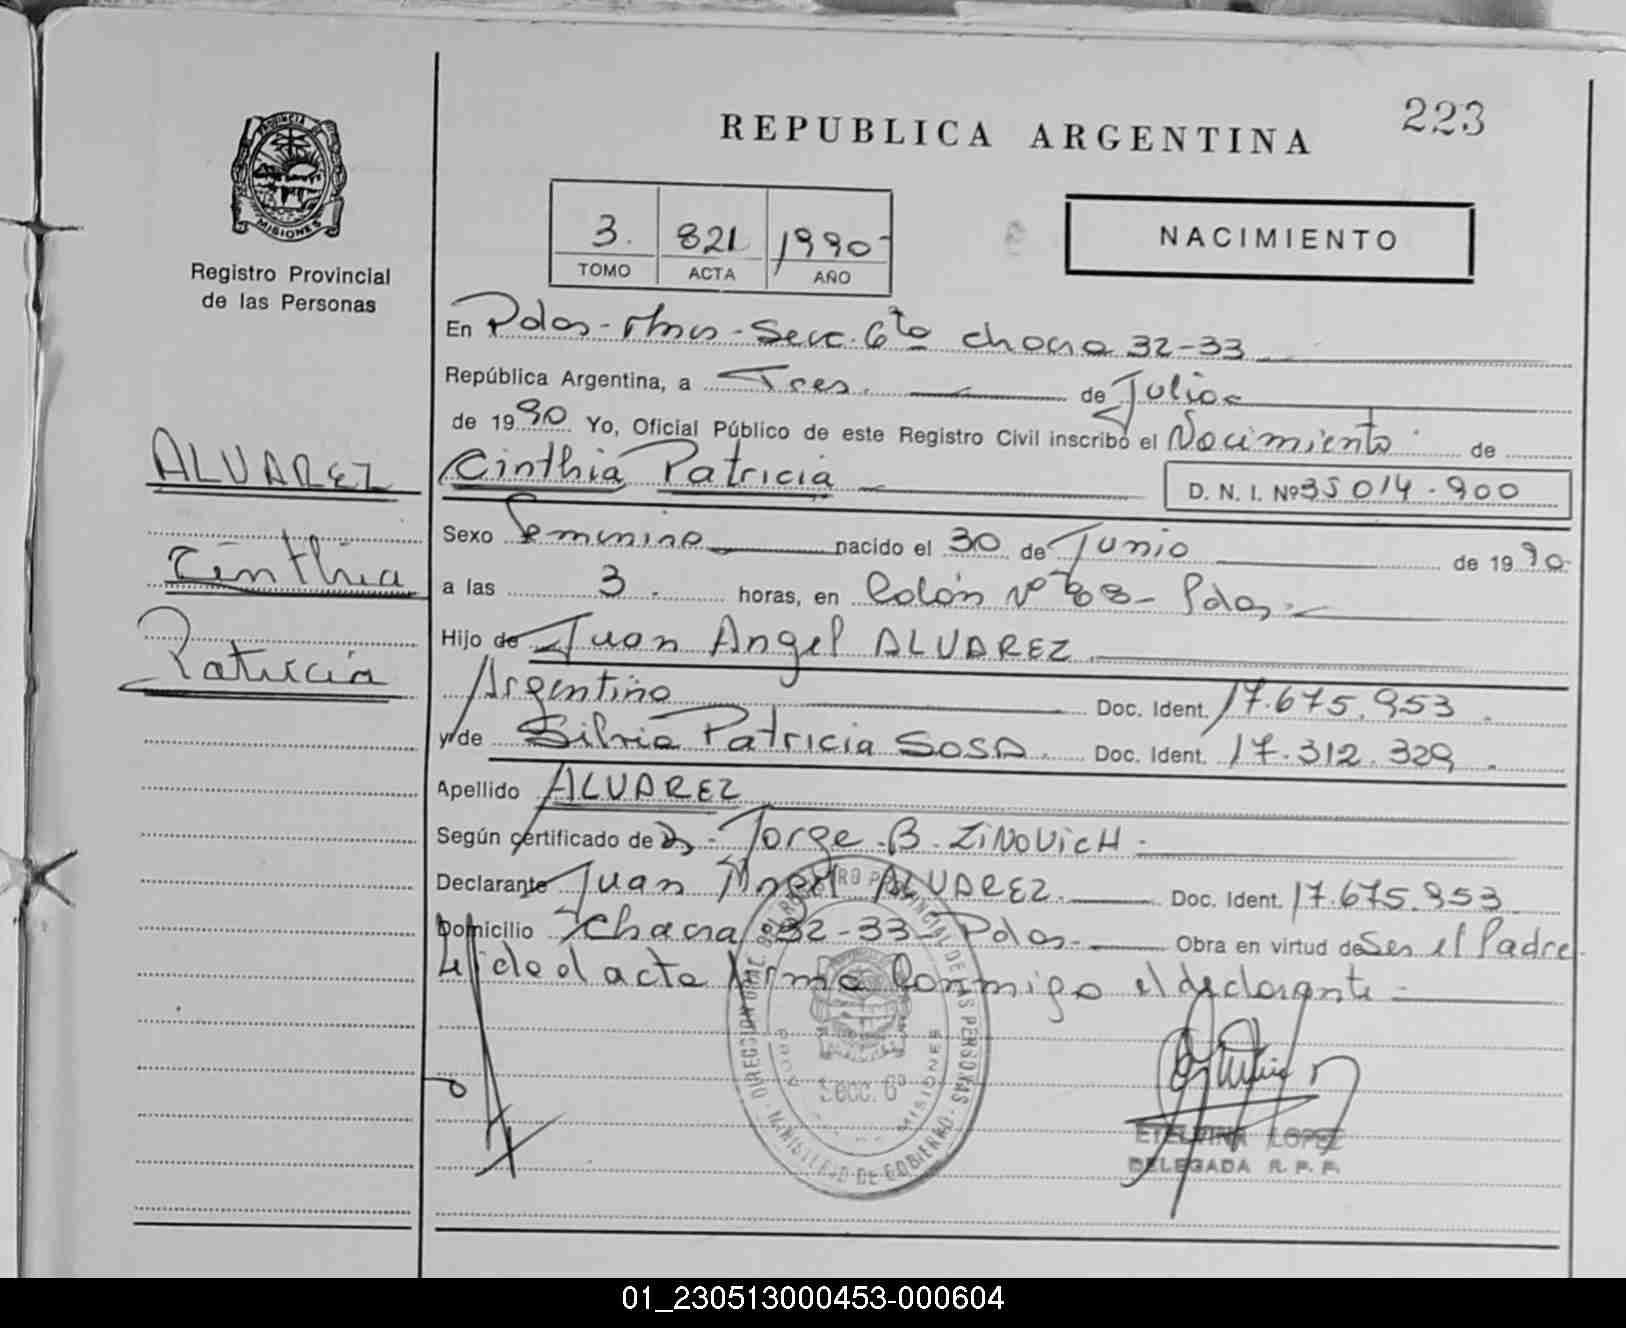 223
REPUBLICA ARGENTINA
PROVINCIA DE
MISIONES
Registro Provincial
de las Personas
3. 821 1990
TOMO ACTA AÑO
NACIMIENTO
En Pdas - Mnes - Secc. 6ta chacra 32-33
República Argentina, a Tres. de Julio
de 1990 Yo, Oficial Público de este Registro Civil inscribo el Nacimiento de
ALVAREZ
Cinthia Patricia
D. N. I. Nº 35 014.900
Cinthia
Patricia
Sexo Femenino nacido el 30 de Junio de 1990
a las 3. horas, en Colón Nº 88 - Pdas.
Hijo de Juan Angel ALVAREZ
Argentino Doc. Ident. 17.675.953.
y de Silvia Patricia SOSA. Doc. Ident. 17.312.329.
Apellido ALVAREZ
Según certificado de D. Jorge B. ZINOVICH
Declarante Juan Angel ALVAREZ. Doc. Ident. 17.675.953
Domicilio Chacra 32-33 - Pdas. Obra en virtud de Ser el Padre.
Leida el acta firma conmigo el declarante
DIRECCION GRAL. DEL REGISTRO PROVINCIAL DE LAS PERSONAS
MINISTERIO DE GOBIERNO
MISIONES
Secc. 6º
ETELVINA LOPEZ
DELEGADA R. P. P.
01_230513000453-000604